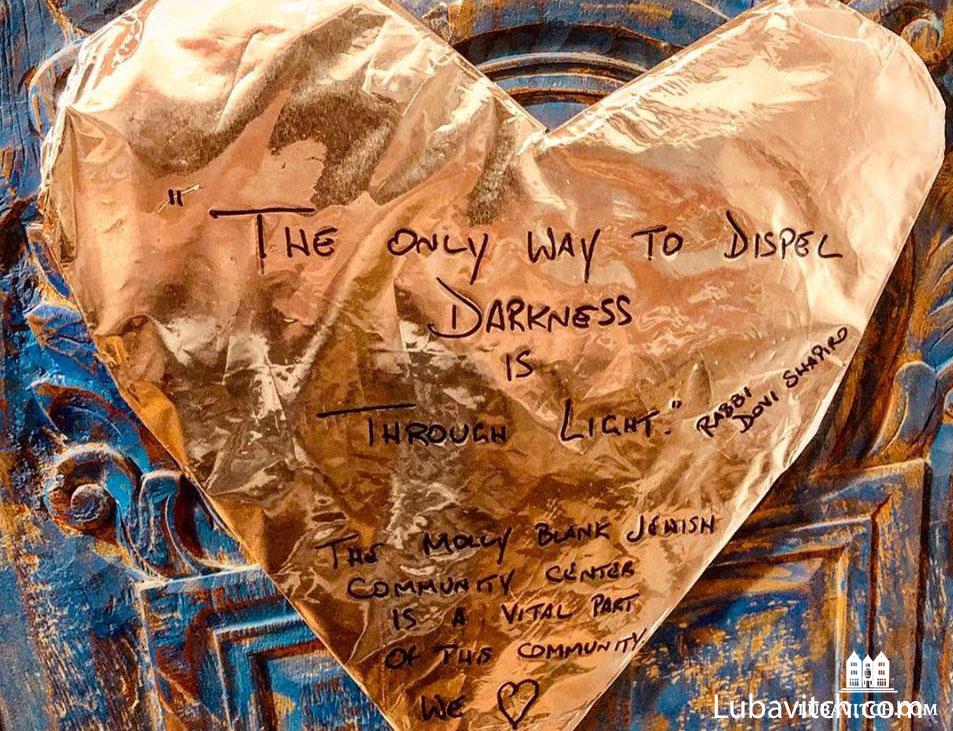 "THE ONLY WAY TO DISPEL
DARKNESS
IS
THROUGH LIGHT."
RABBI
DOVI SHAPIRO
THE MOLLY BLANK JEWISH
COMMUNITY CENTER
IS A VITAL PART
OF THIS COMMUNITY
WE ♡
Lubavitch.com
LUBAVITCH.COM